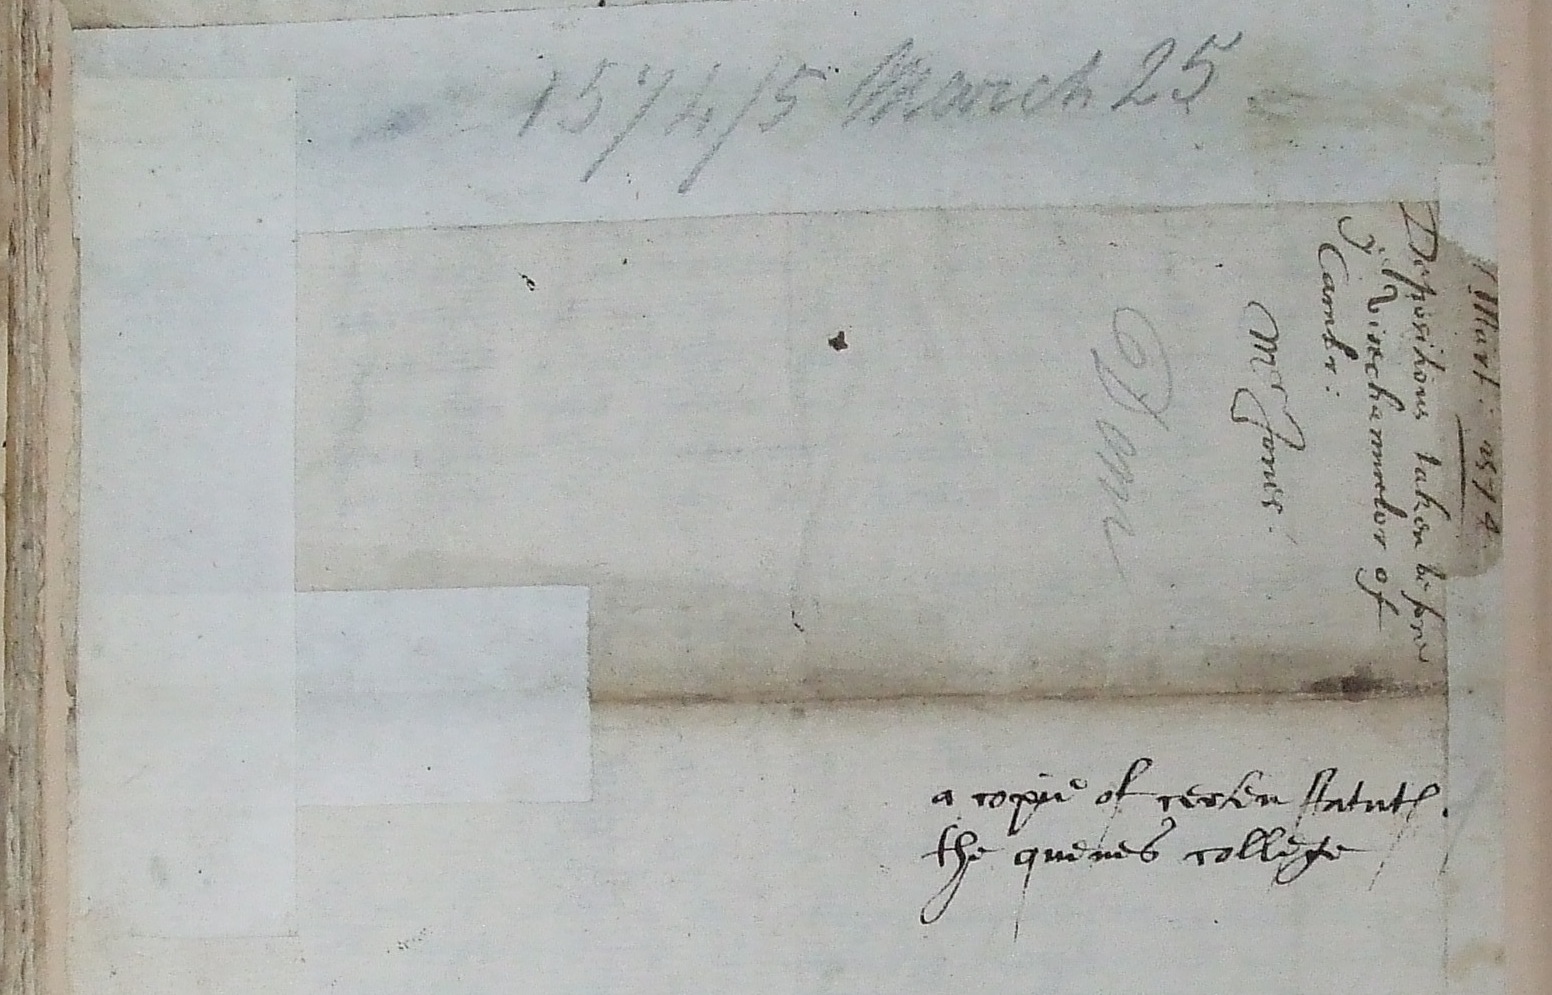 1574/5 March 25
Mart: 1574
Depositions taken before
ye Vicechauncelor of
Cambr:
Mr Jones.
Dom
a copie of certen statut
the quenes college